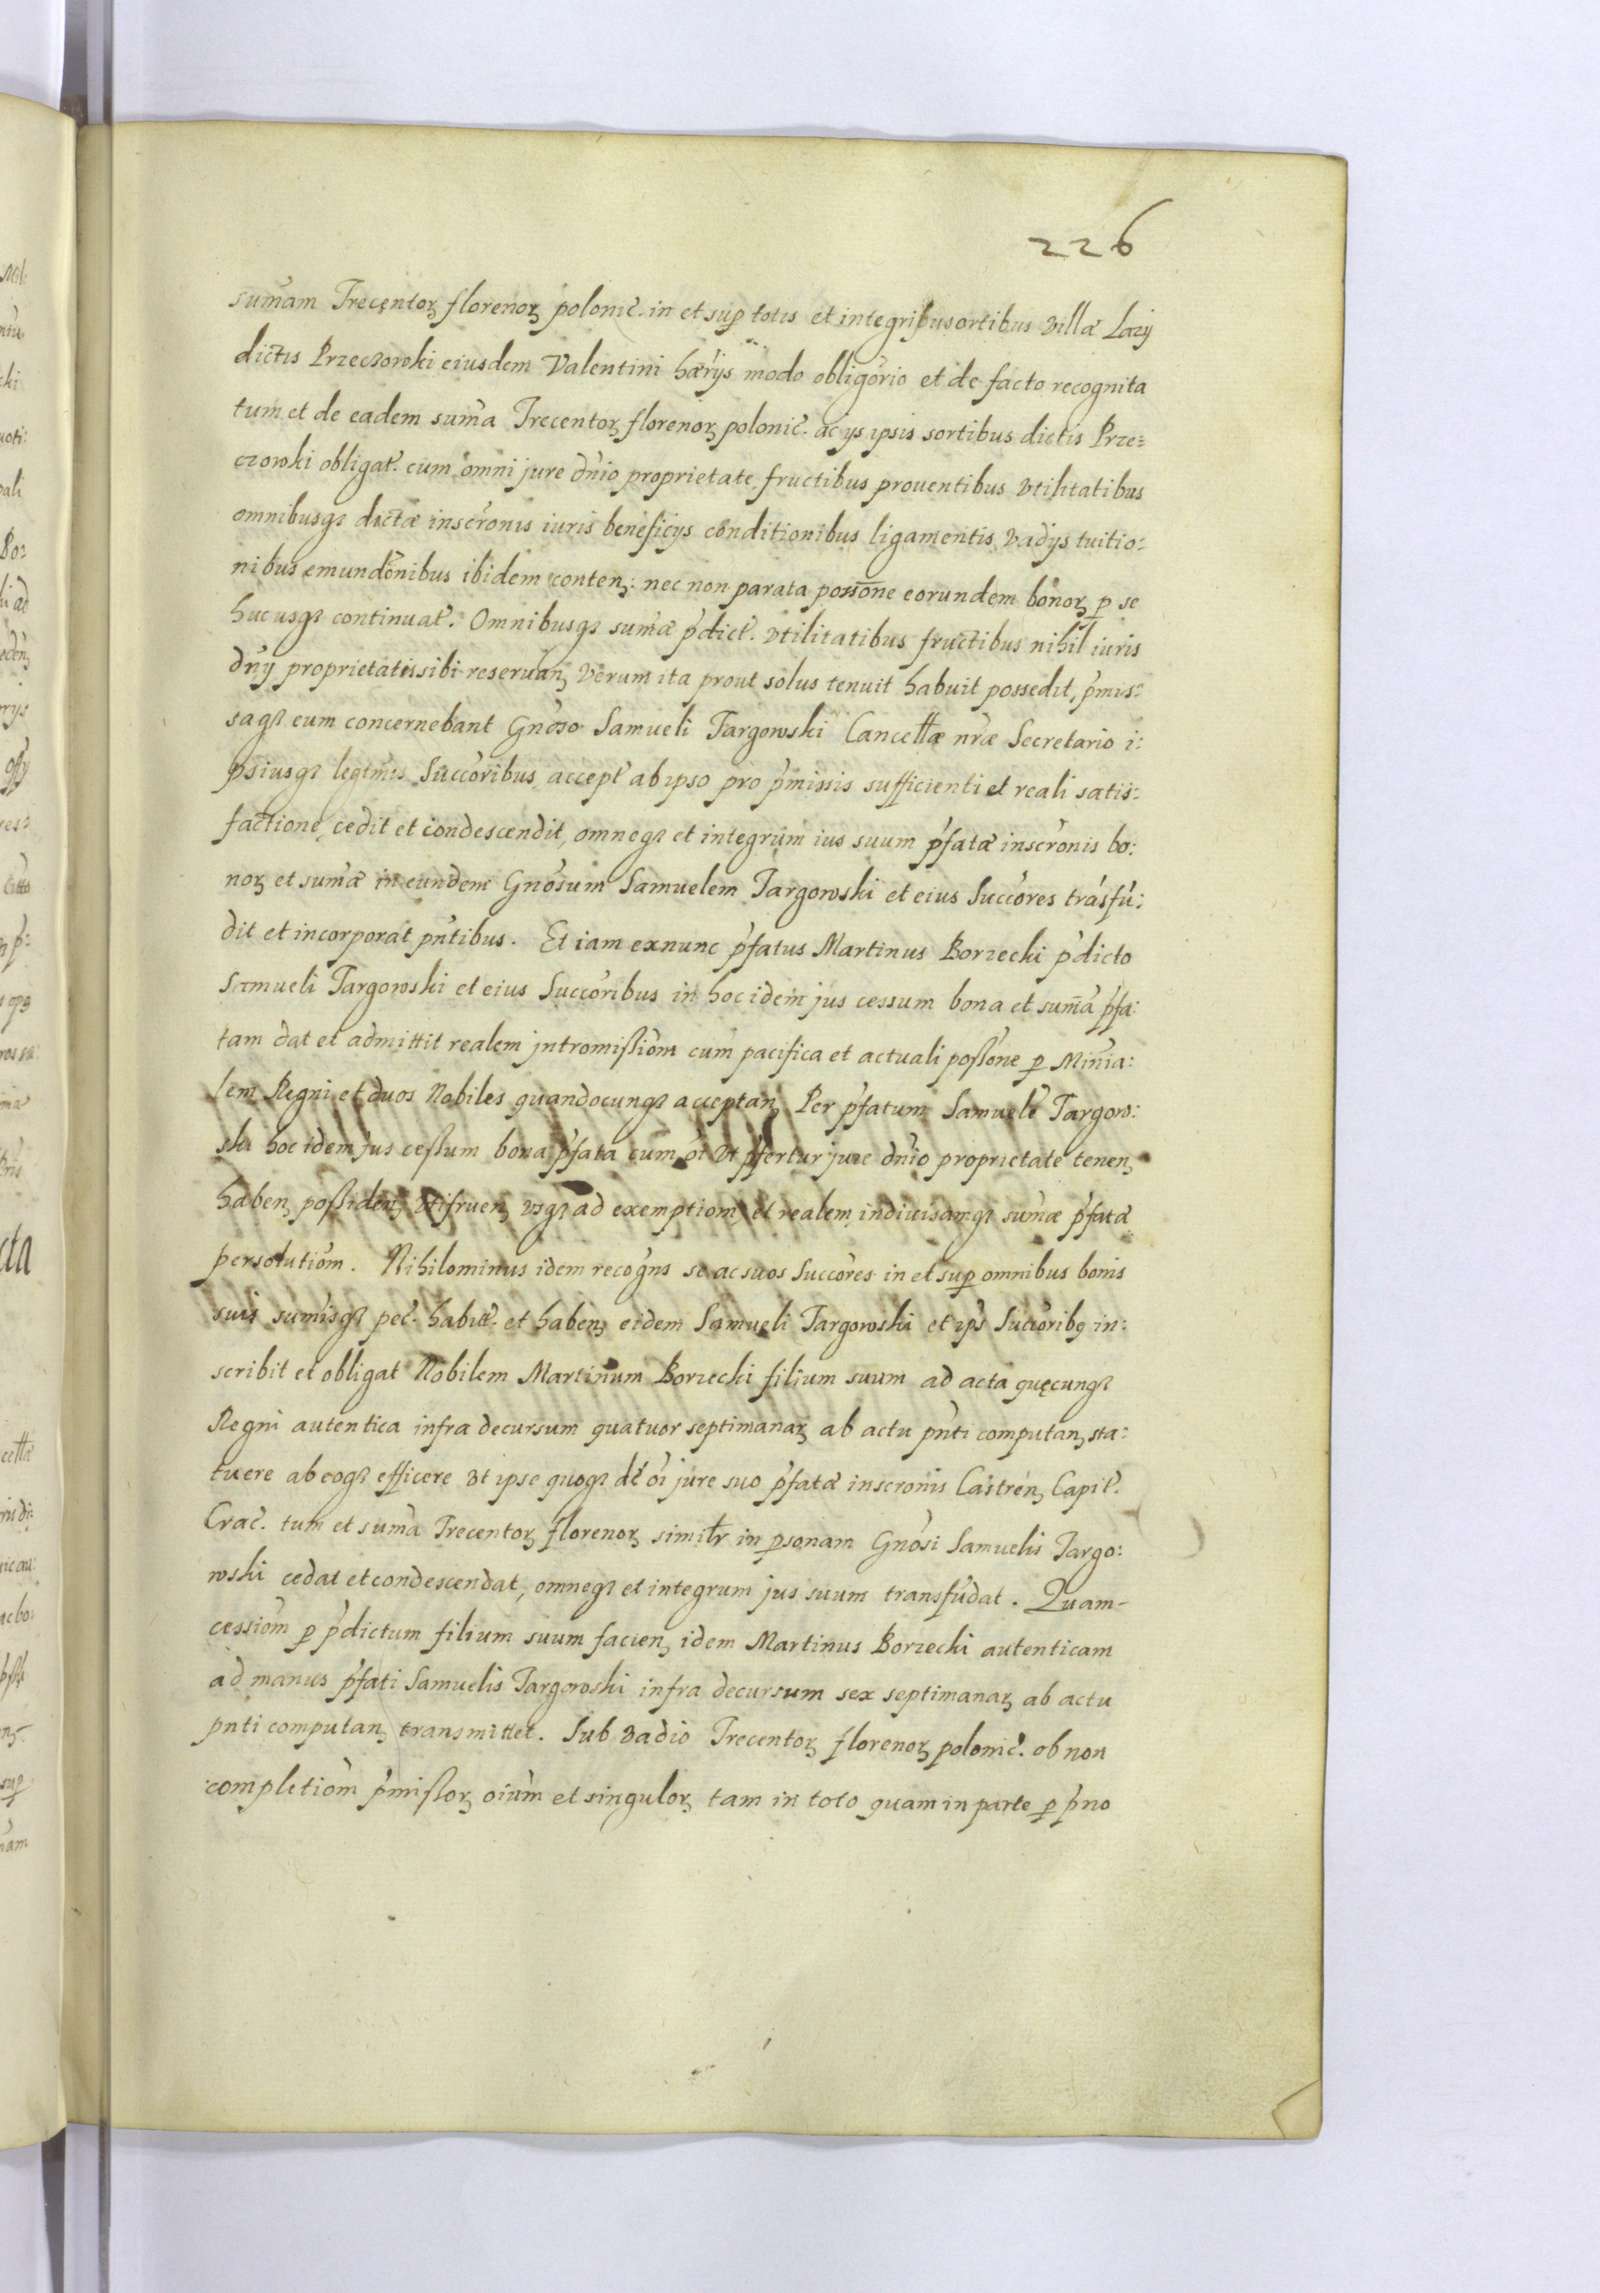 226
sum̃am Trecentoꝝ florenoꝝ poloniĉ. in et suꝑ totis et integribusortibus villæ Lazy
dictis Przeczowski eiusdem Valentini hæŕijs modo obligório et de facto recognita
tum et de eadem sum̃a Trecentoꝝ florenoꝝ poloniĉ. ac ijs ipsis sortibus dictis Prze=
czowski obligat̃. cum omni jure dn̄io proprietate fructibus prouentibus vtilitatibus
omnibusqȝ dictæ inscrõnis iuris beneficijs conditionibus ligamentis vadijs tuitio:
nibus emundõnibus ibidem contenꝫ: nec non parata possõne eorundem bonoꝝ ꝑ se
hucusqȝ continuat̃. Omnibusqȝ sum̃æ p̃dict̃. vtilitatibus fructibus nihil iuris
dñy proprietatissibi reseruanꝫ verum ita prout solus tenuit habuit possedit, p̃mis:
saqȝ eum concernebant Gnõso Samueli Targowski Cancełłæ nr̃æ Secretario i:
psiusqȝ legtm̃is Succõribus, accept̃ ab ipso pro p̃missis sufficienti et reali satis:
factione, cedit et condescendit, omneqȝ et integrum ius suum p̃fatæ inscrõnis bo:
noꝝ et sum̃æ in eundem Gnõsum Samuelem Targowski et eius Succõres trásfú:
dit et incorporat pñtibus. Et iam exnunc p̃fatus Martinus Borzecki p̃dicto
Samueli Targowski et eius Succõribus in hoc idem jus cessum bona et sum̃ã p̃fa:
tam dat et admittit realem jntromißiõm cum pacifica et actuali poßõne ꝑ Minĩa:
lem Regni et duos Nobiles quandocunqȝ acceptanꝫ Per p̃fatum Samuelẽ Targow:
ski hoc idem jus ceßum bona p̃fata cum oĩ vt p̃fertur jure dn̄io proprietate tenenꝫ
habenꝫ poßidenꝫ vtifruenꝫ vsqȝ ad exemptiom̃ et realem indiuisamqȝ sum̃æ p̃fatæ
persolutiõm. Nihilominus idem recogñs se ac suos Succõres in et suꝑ omnibus bonis
suis sum̃isqȝ peĉ. habit̃. et habenꝫ eidem Samueli Targowski et ips̃ Succõribꝫ in:
scribit et obligat Nobilem Martinum Borzecki filium suum ad acta quęcunqȝ
Regni autentica infra decursum quatuor septimanaꝝ ab actu pñti computanꝫ sta:
tuere ab eoqȝ efficere vt ipse quoqȝ de oĩ jure suo p̃fatæ inscronis Castrenꝫ Capit̃.
Craĉ. tum et sum̃a Trecentoꝝ florenoꝝ similr̃ in ꝑsonam Gnõsi Samuelis Targo:
wski cedat et condescendat, omneqȝ et integrum jus suum transfũdat. Quam-
cessiõm ꝑ p̃dictum filium suum facienꝫ idem Martinus Borzecki autenticam
ad manus p̃fati Samuelis Targowski infra decursum sex septimanaꝝ ab actu
pnti computanꝫ transmittet. Sub vadio Trecentoꝝ florenoꝝ poloniĉ. ob non
completiõm p̃mißoꝝ oiũm et singuloꝝ tam in toto quam in parte ꝑ p̃no